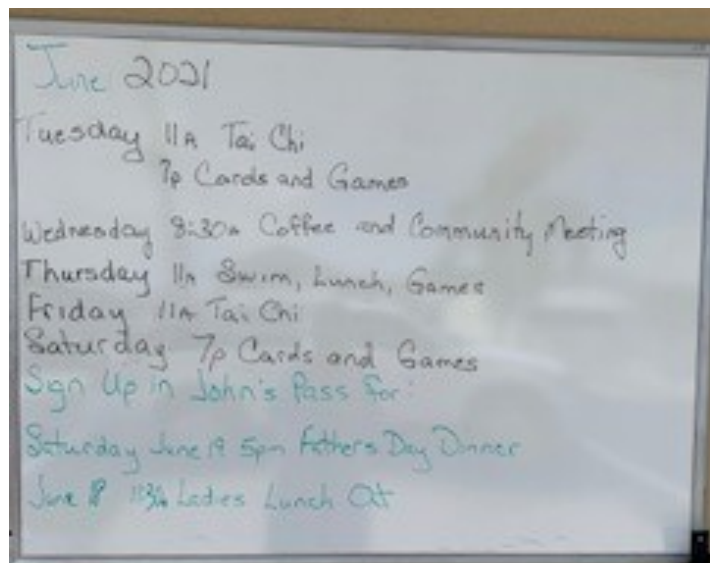 June 2021
Tuesday 11A Tai Chi
7p Cards and Games
Wednesday 8:30A Coffee and Community Meeting
Thursday 11A Swim, Lunch, Games
Friday 11A Tai Chi
Saturday 7p Cards and Games
Sign Up in John's Pass For:
Saturday June 19 5pm Fathers Day Dinner
June Ladies Lunch Out